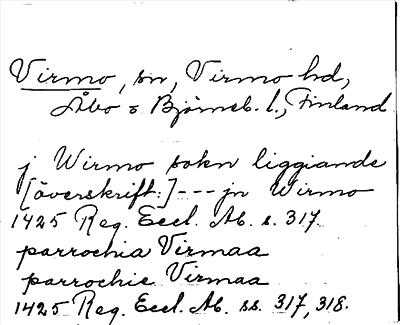 Virmo, sn, Virmo hd,
Åbo o Björneb. l., Finland
j Wirmo sokn liggiande
[överskrift:] --- jn Wirmo
1425 Reg. Eccl. Ab. s. 317.
parrochia Virmaa
parrochie Virmaa
1425 Reg. Eccl. Ab. ss. 317, 318.